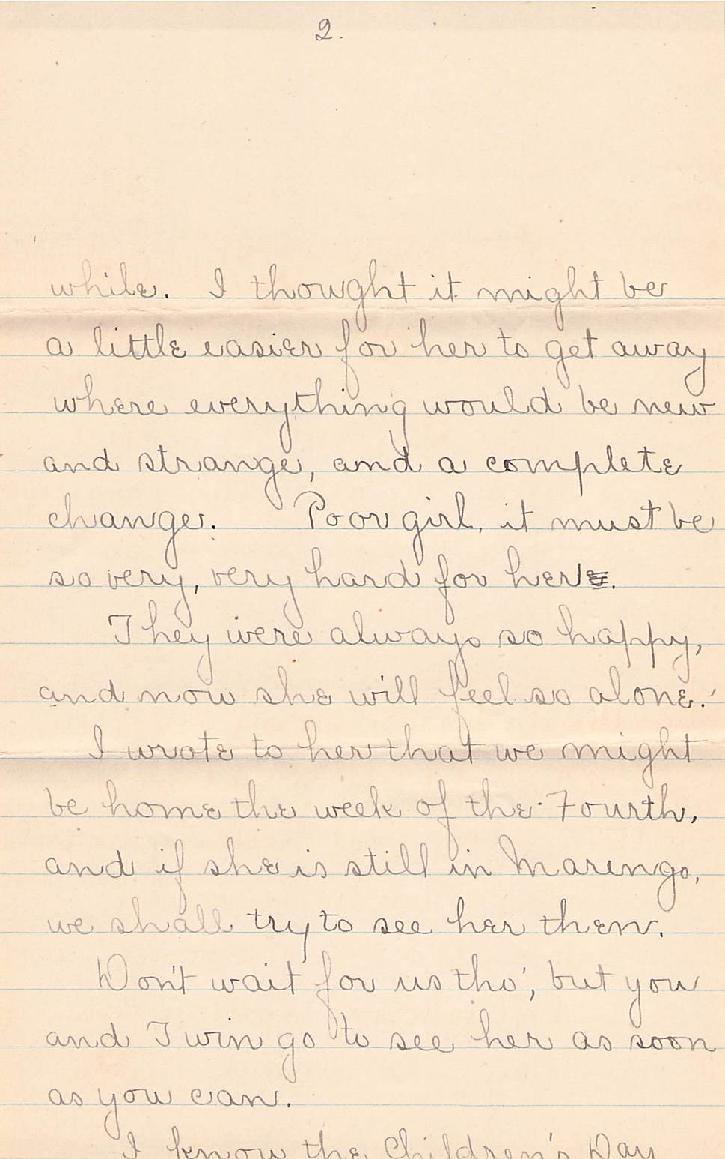 2.
while. I thought it might be
a little easier for her to get away
where everything would be new
and strange, and a complete
change. Poor girl, it must be
so very, very hard for her.
They were always so happy,
and now she will feel so alone.
I wrote to her that we might
be home the week of the Fourth,
and if she is still in Marengo,
we shall try to see her then.
Don't wait for us tho', but you
and Twin go to see her as soon
as you can.
I know the Children's Day